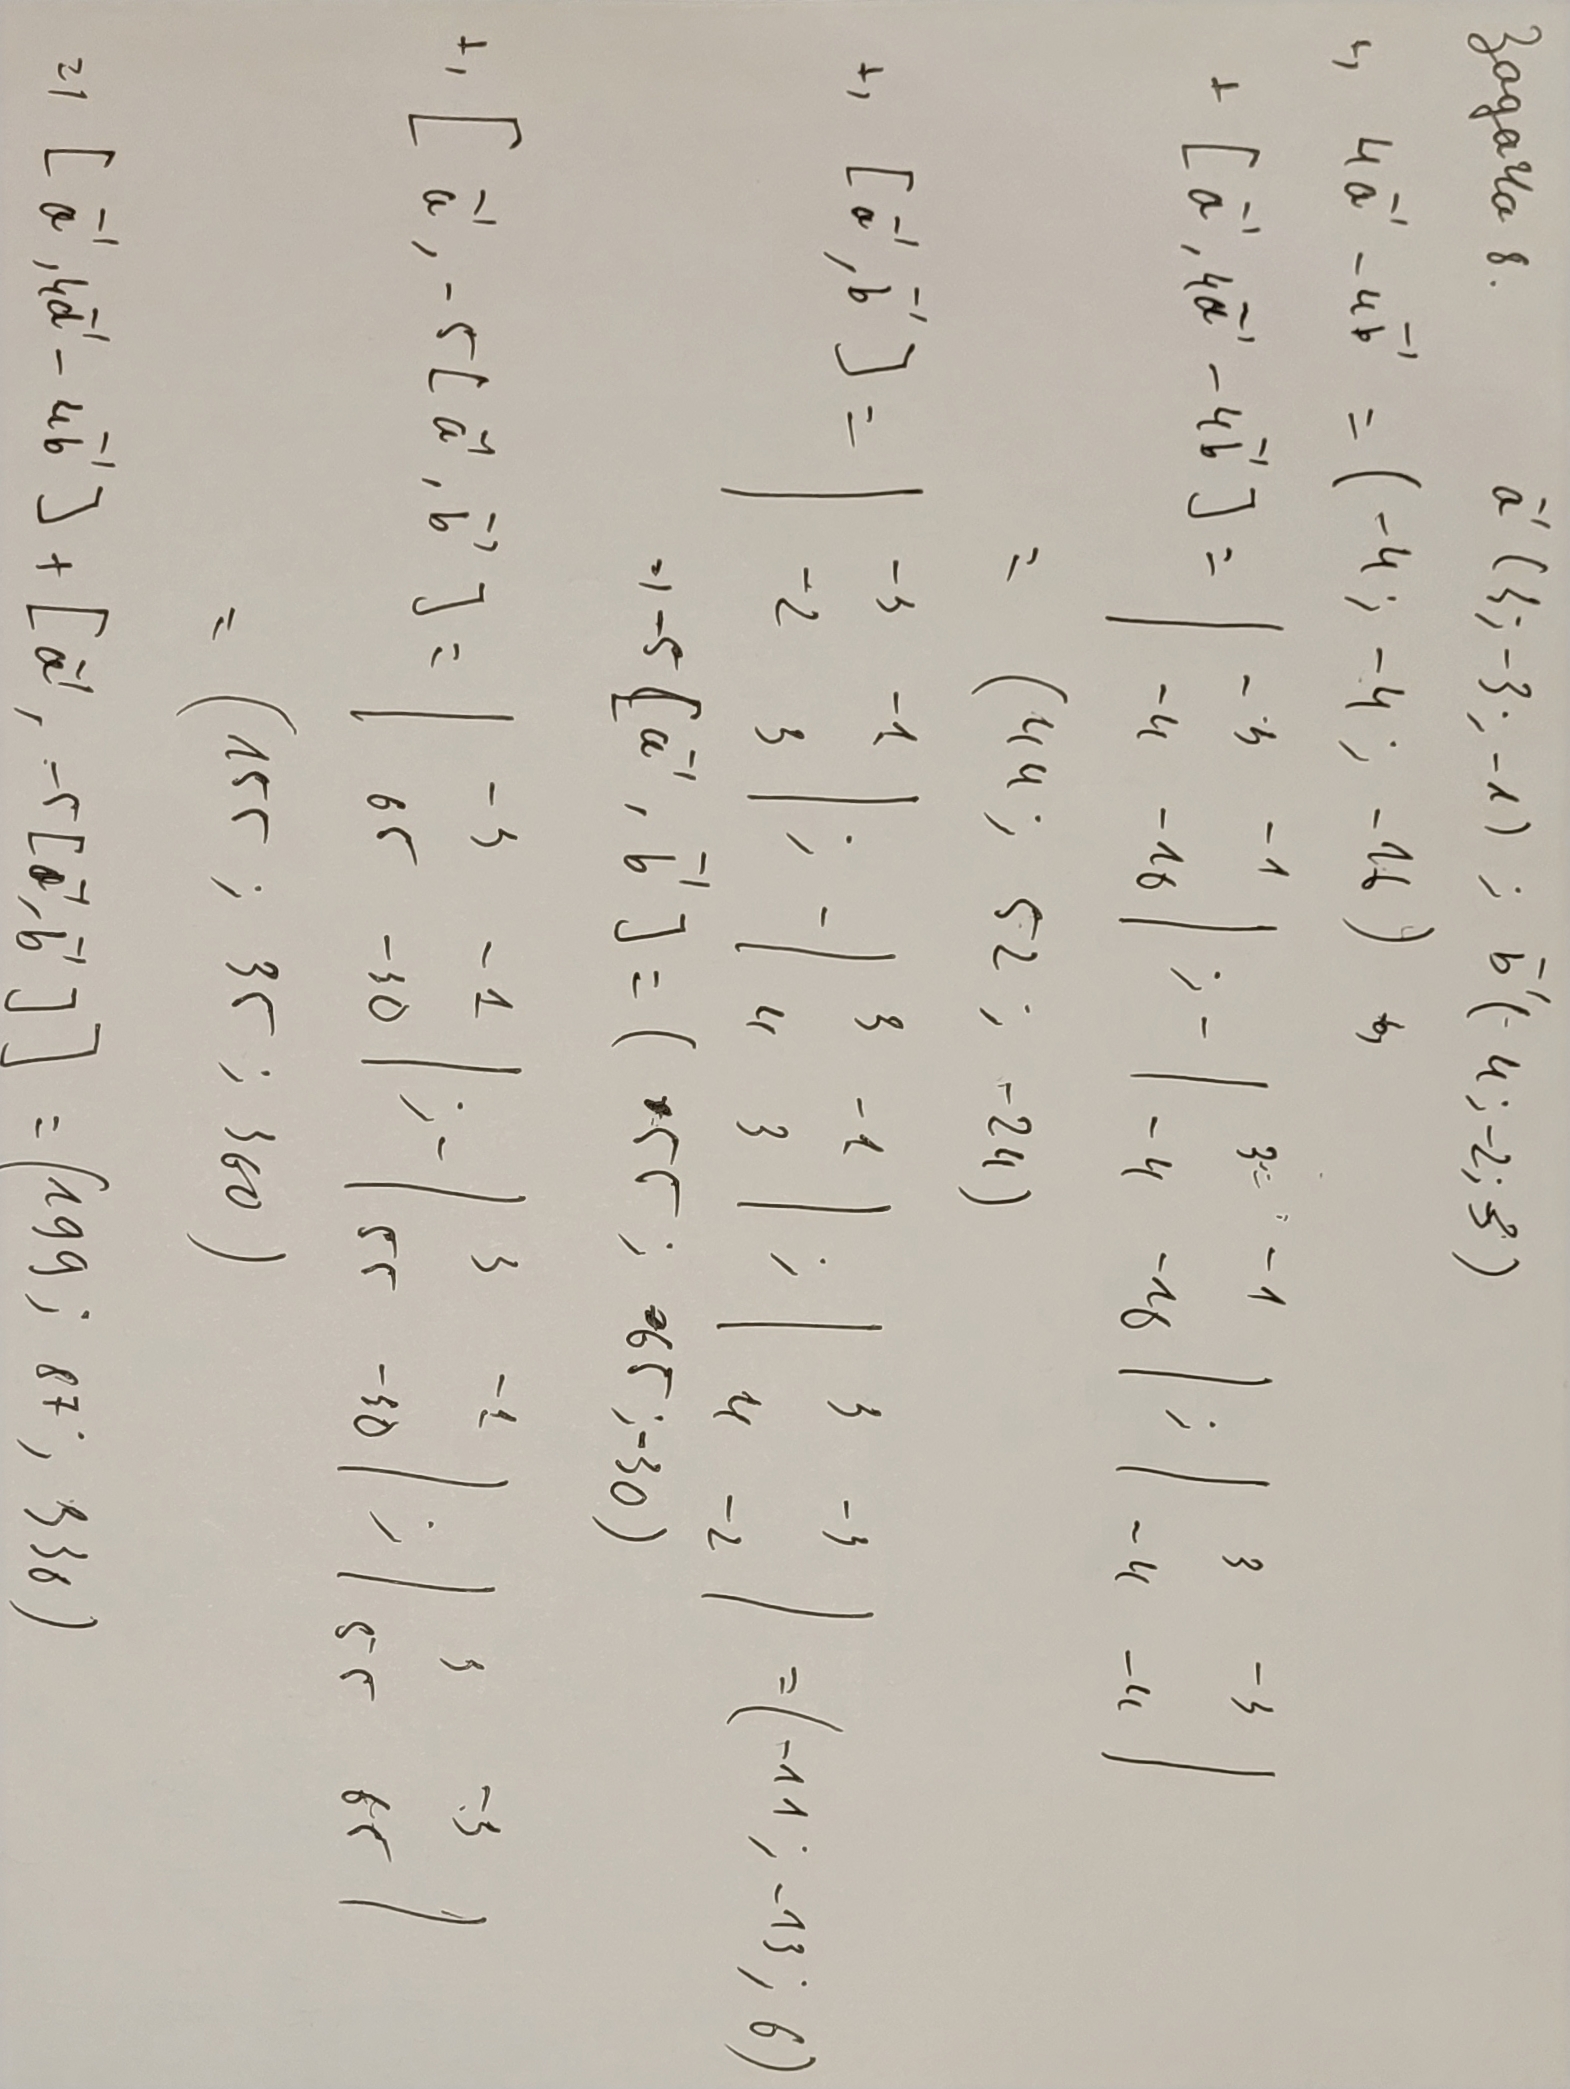 Задача 8. a⃗ (3; -3; -1) ; b⃗ (4; -2; 3)
+, 4a⃗ - 4b⃗ = (-4; -4; -16)
+ [a⃗, 4a⃗ - 4b⃗] = | -3 -1 / -4 -16 | ; - | 3 -1 / -4 -16 | ; | 3 -3 / -4 -4 |
= (44; 52; -24)
+, [a⃗, b⃗] = | -3 -1 / -2 3 | ; - | 3 -1 / 4 3 | ; | 3 -3 / 4 -2 | = (-11; -13; 6)
=> -5[a⃗, b⃗] = (55; 65; -30)
+, [a⃗, -5[a⃗, b⃗] = | -3 -1 / 65 -30 | ; - | 3 -1 / 55 -30 | ; | 3 -3 / 55 65 |
= (155; 35; 360)
=> [a⃗, 4a⃗ - 4b⃗] + [a⃗, -5[a⃗, b⃗]] = (199; 87; 336)